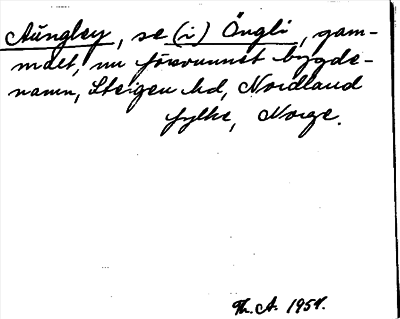 Aúngley, se (i) Öngli, gam-
malt, nu försvunnet bygde-
namn, Steigen hd, Nordland
fylke, Norge.
Th. A. 1951.